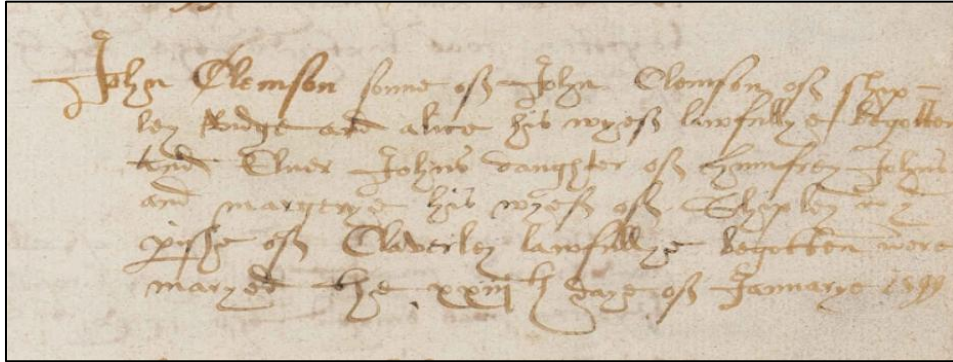 John Clemson sonne off John Clemson off Ship=
ley Ridge and alice his wyeff lawfullye begotten
and Elner Johns daughter off humfrey Johns
and margerye his wyeff off Shipley in ye
p'ishe off Claverley lawfullye begotten were
maryed the xxiiijth daye off Januarye 1599